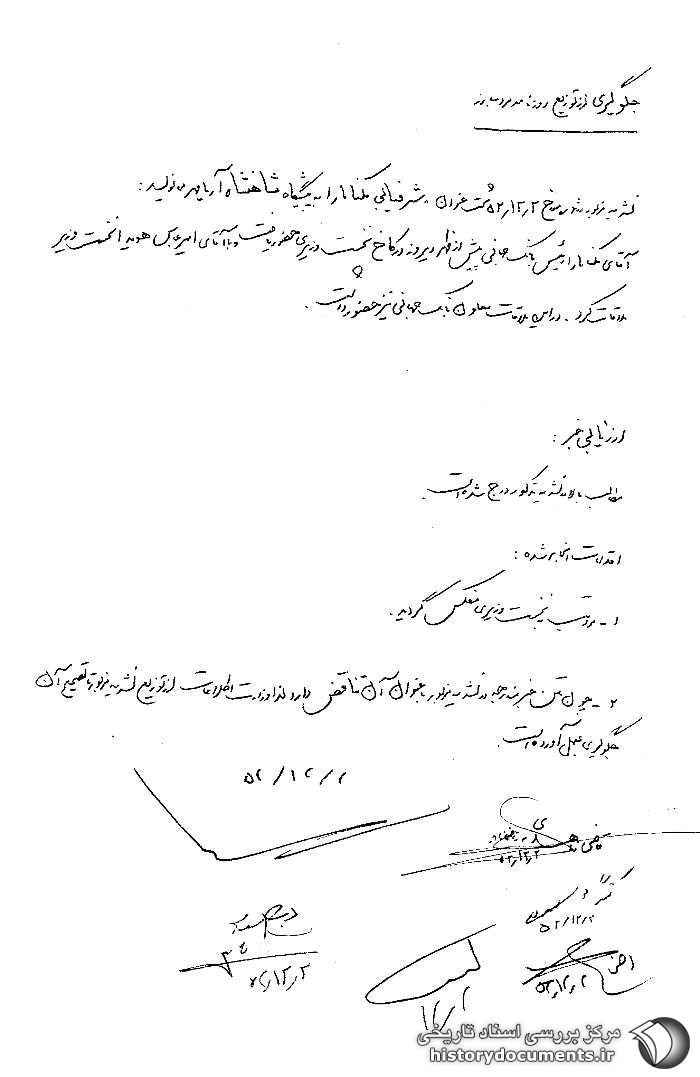 جلوگیری از توزیع روزنامه مرد مبارز
نشریه مزبور در شماره مورخ ۵۲/۱۲/۲ تحت عنوان شرفیابی مکنامارا به پیشگاه شاهنشاه آریامهر می‌نویسد:
آقای مکنامارا رئیس بانک جهانی پیش از ظهر دیروز در کاخ نخست وزیری حضور یافت و با آقای امیرعباس هویدا نخست وزیر
ملاقات کرد. در این ملاقات معاون بانک جهانی نیز حضور داشت.
ارزیابی خبر:
مطالب بالا در نشریه مذکور درج شده است.
اقدامات انجام شده:
۱- مراتب به نخست وزیری منعکس گردید.
۲- چون متن خبر مندرجه در نشریه مزبور با عنوان آن تناقض دارد لذا وزارت اطلاعات از توزیع نشریه مزبور تا تصحیح آن
جلوگیری بعمل آورده است.
۵۲/۱۲/۲
۵۲/۱۲/۲
۵۲/۱۲/۲
۵۲/۱۲/۲
۵۲/۱۲/۲
۱۲/۲
مرکز بررسی اسناد تاریخی
historydocuments.ir